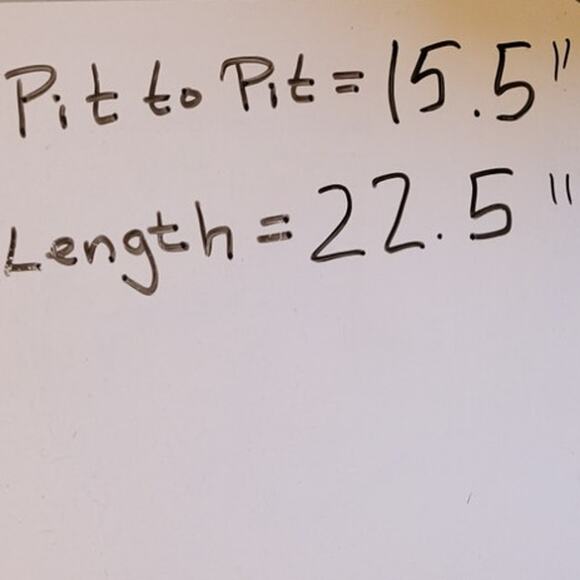 Pit to Pit = 15.5"
Length = 22.5"